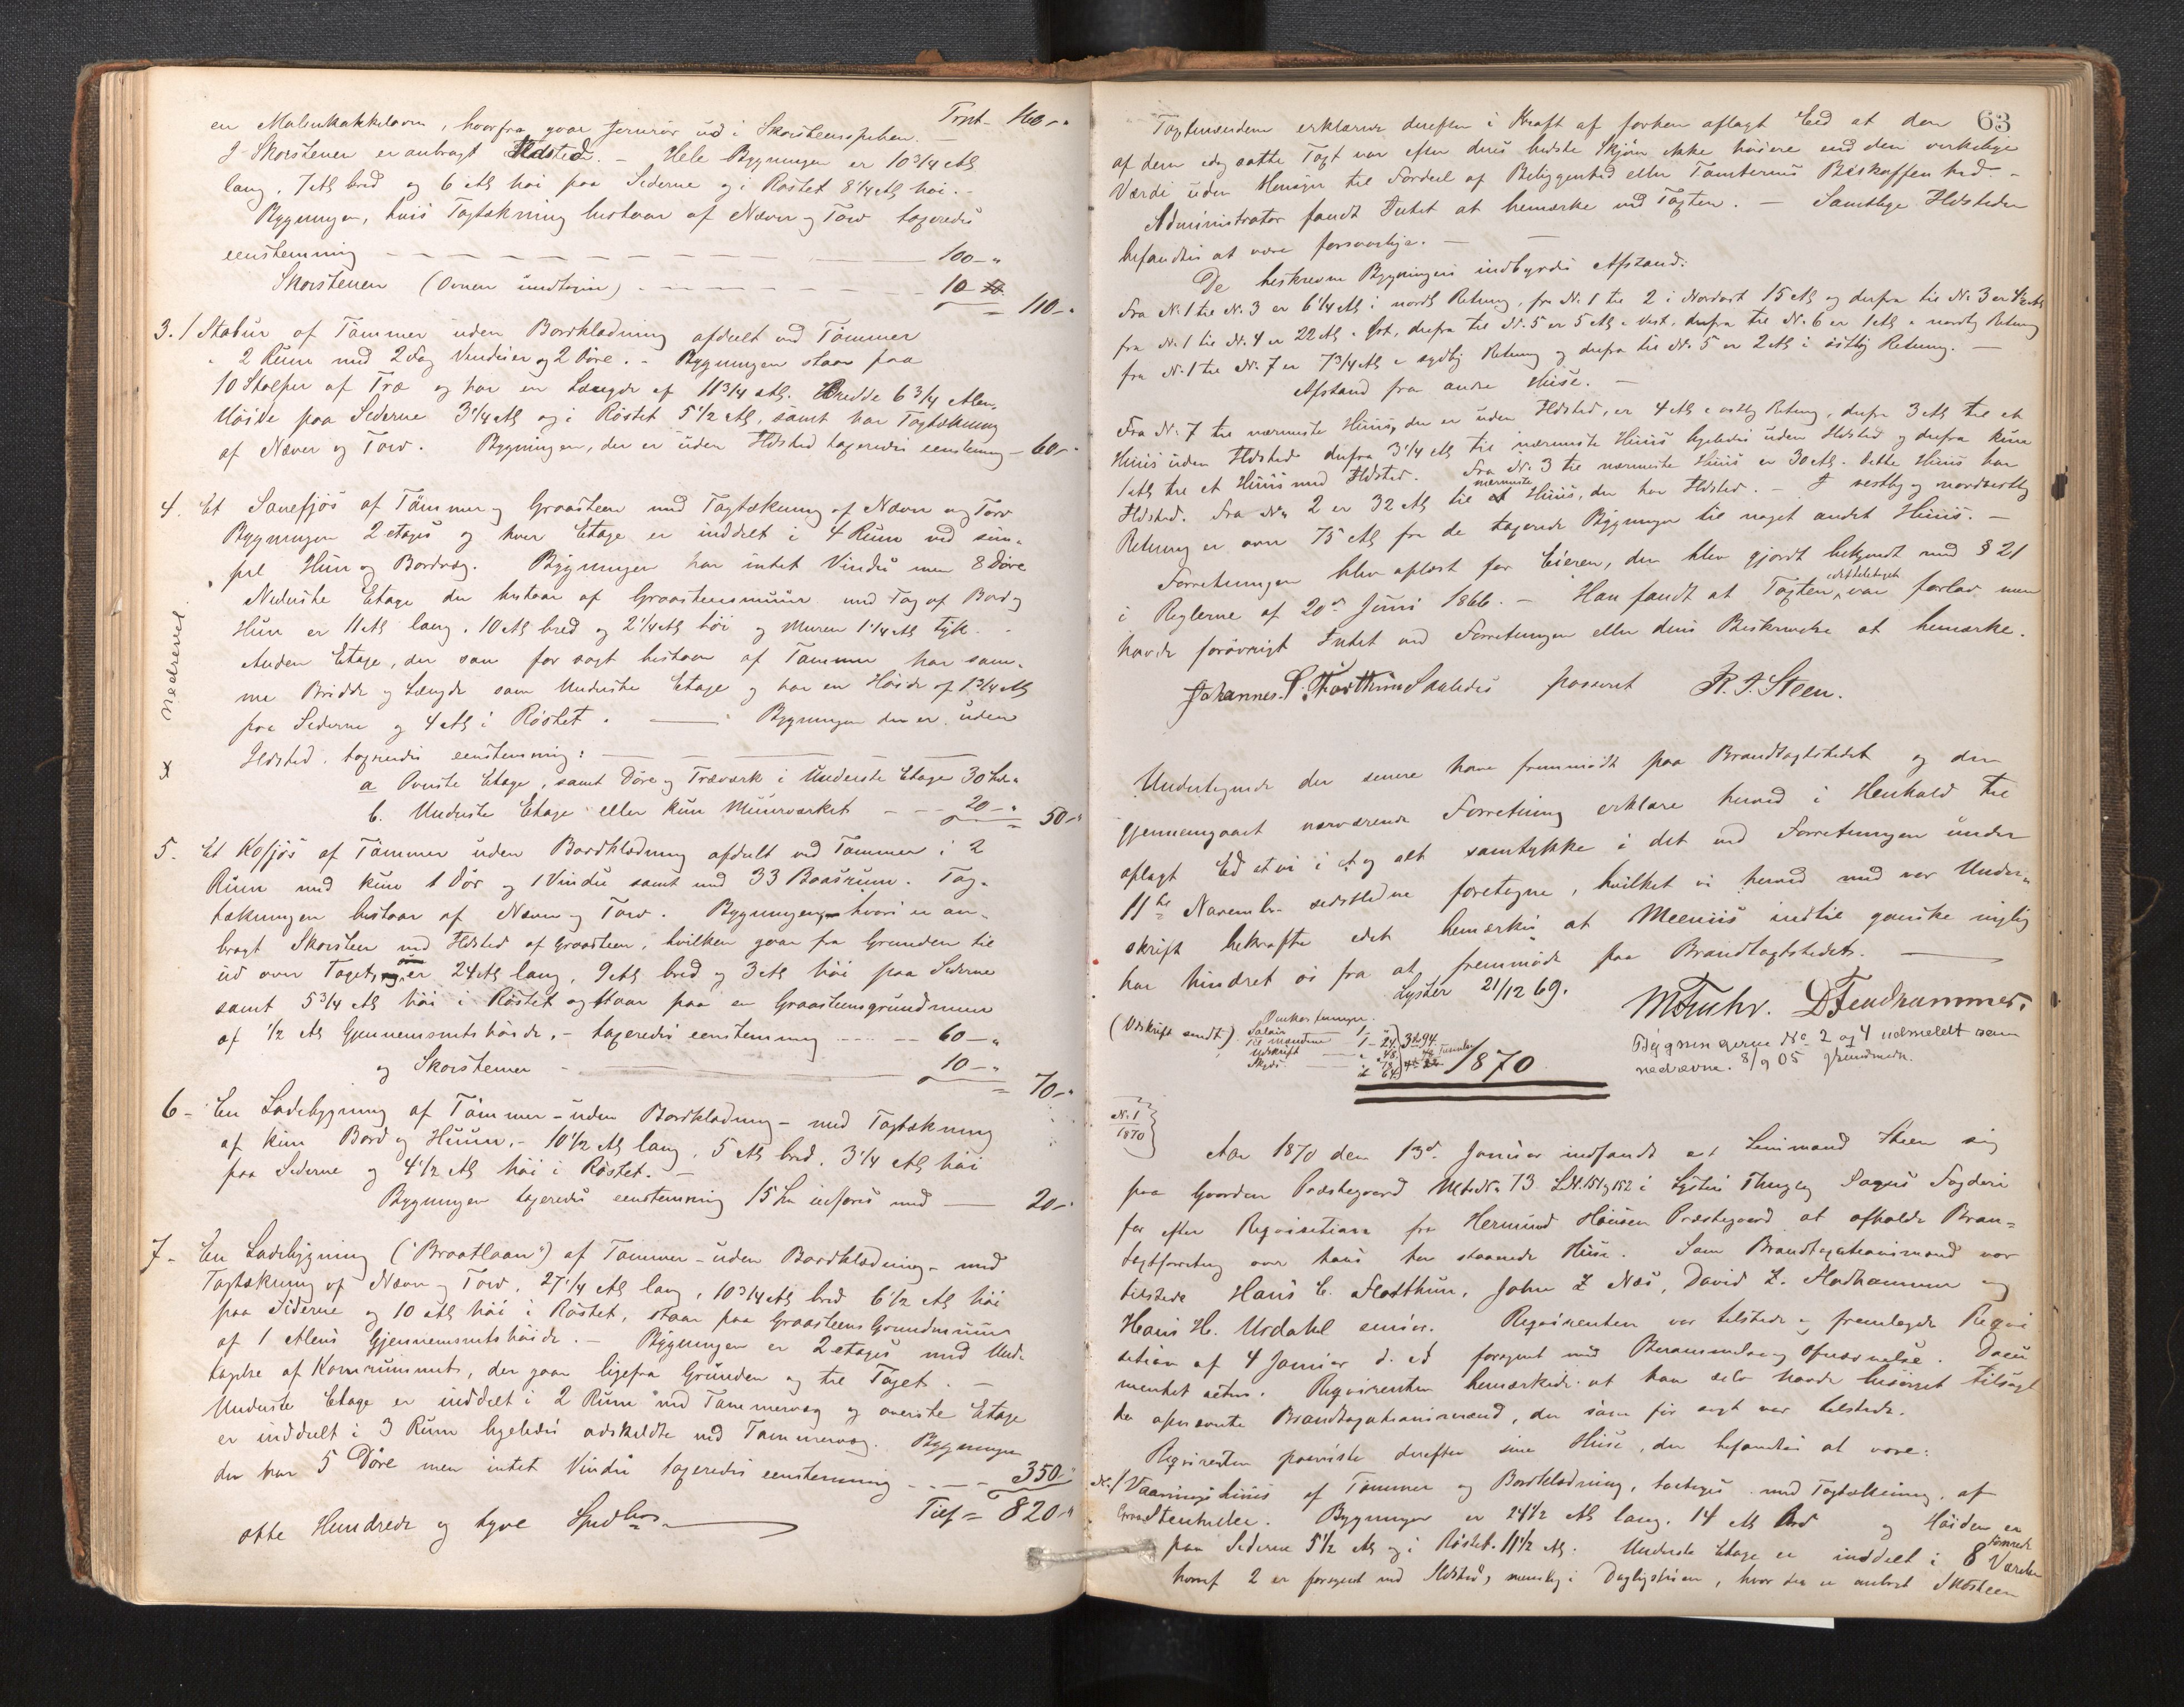 Trpt. 160 - "
en Malenkakkelovn, hvorfra gaar Jernrør ud i Skorsteenspiben.
I Skorstenen er anbragt Ildsted. - Hele Bygningen er 10 3/4 Al
lang, 7 Al bred og 6 Al høi paa Siderne og i Røstet 8 1/4 Al høi. -
Bygningen, hvis Tagtækning bestaar af Næver og Torv taxeredes
eenstemmig - - - 100 - "
Skorstenen (Ovnen undtagen) - - - 10
110 - "
3. 1 Stabur af Tømmer uden Bordklædning afdeelt ved Tømmer
i 2 Rum med 2 Fag Vinduer og 2 Døre. - Bygningen staar paa
10 Stolper af Træ og har en Længde af 11 3/4 Al. Bredde 6 3/4 Alen,
Høide paa Siderne 3 1/4 Al og i Røstet 5 1/2 Al, samt har Tagtækning
af Næver og Torv. Bygningen, der er uden Ildsted taxeredes eenstemmig - 60 - "
4. Et Sauefjøs af Tømmer og Graasteen med Tagtækning af Næver og Torv
Bygningen 2 etages og hver Etage er inddelt i 4 Rum ved sim-
pel Hun og Bordvæg. Bygningen har intet Vindu men 8 Døre
Nederste Etage der bestaar af Graasteensmuur med Tag af Bord og
Hun er 11 Al lang, 10 Al bred og 2 1/4 Al høi og Muren 1 1/4 Al tyk. -
Anden Etage, der som før sagt bestaar af Tømmer har sam-
me Bredde og Længde som Underste Etage og har en Høide af 1 3/4 Al
paa Siderne og 4 Al i Røstet. - Bygningen der er uden
Ildsted, taxeredes eenstemmig:
a Øverste Etage, samt Døre og Træværk i Underste Etage 30
b. Underste Etage eller kun Muurværket - - 20 - "
50 - "
x nedrevet
5. Et Kofjøs af Tømmer uden Bordklædning afdeelt ved Tømmer i 2
Rum med kun 1 Dør og 1 Vindu samt med 33 Baasrum. Tag-
tækningen bestaar af Næver og Torv. Bygningen, hvori er an-
bragt Skorsteen med Ildsted af Graasteen, hvilken gaar fra Grunden til
ud over Taget, er 24 Al lang, 9 Al bred og 3 Al høi paa Siderne
samt 5 3/4 Al høi i Røstet og staar paa en Graasteensgrundmuur
af 1/2 Al Gjennemsnitshøide, - taxeredes eenstemmig - - 60 - "
og Skorstenen - 10 - "
70 - "
6 - En Ladebygning af Tømmer - uden Bordklædning - med Tagtækning
af kun Bord og Huun, - 10 1/2 Al lang, 5 Al bred, 3 1/4 Al høi
paa Siderne og 4 1/2 Al høi i Røstet. -
Bygningen taxeredes eenstemmig 15 indføres med - 20 - "
7 - En Ladebygning ("Braatlaan") af Tømmer - uden Bordklædning - med
Tagtækning af Næver og Torv, 27 1/4 Al lang, 10 3/4 Al bred 6 1/2 Al høi
paa Siderne og 10 Al høi i Røstet, staar paa Graasteens Grundmuur
af 1 Alens Gjennemsnitshøide. - Bygningen er 2 etages med Und-
tagelse af Kornrummet, der gaar ligefra Grunden og til Taget. -
Underste Etage er inddeelt i 2 Rum ved Tømmervæg og øverste Etage
er inddeelt i 3 Rum ligeledes adskildte ved Tømmervæg. Bygningen
der har 5 Døre men intet Vindu taxeredes eenstemmig - - - 350 "
Tils = 820 - "
otte Hundrede og tyve Spd
63
Taxtmændene erklærede derefter i Kraft af forhen aflagt Eed at den
af dem idag satte Taxt var efter deres bedste Skjøn ikke høiere end den virkelige
Værdi uden Hensyn til Fordeel af Beliggenhed eller Tomternes Beskaffenhed. -
Administrator fandt Intet at bemærke ved Taxten. - Samtlige Ildsteder
befandtes at være forsvarlige. -
De beskrevne Bygningers indbyrdes Afstand:
Fra N. 1 til N. 3 er 6 1/4 Al i nordlig Retning, fra N. 1 til 2 i Nordost 15 Al og derfra til N. 3 er
fra N. 1 til N. 4 er 22 Al i Øst, derfra til N. 5 er 5 Al i Vest, derfra til N. 6 er 1 Al i nordlig Retning
fra N. 1 til N. 7 er 7 3/4 Al i sydlig Retning og derfra til N. 5 er 2 Al i østlig Retning. -
Afstand fra andre Huse. -
Fra N. 7 til nærmeste Huus, der er uden Ildsted, er 4 Al i østlig Retning, derfra 3 Al til et
Huus uden Ildsted derfra 3 1/4 Al til nærmeste Huus ligeledes uden Ildsted og derfra kun
1 Al til et Huus med Ildsted. Fra N. 3 til nærmeste Huus er 30 Al. Dette Huus har
Ildsted. Fra N. 2 er 32 Al til nærmeste Huus, der har Ildsted. - I vestlig og nordvestlig
Retning er over 75 Al fra de taxerede Bygninger til noget andet Huus. -
Forretningen blev oplæst for Eieren, der blev gjordt bekjendt med § 21
i Reglerne af 20de Juni 1866. - Han fandt at Taxten var for lav men
havde forøvrigt Intet ved Forretningen eller dens Beskrivelse at bemærke.
Johannes S. Skaledes passeret R. J. Steen.
Undertegnede der senere have fremmødt paa Brandtaxtstedet og der
gjennemgaaet nærværende Forretning erklære herved i Henhold til
aflagt Ed at vi i et og alt samtykke i det ved Forretningen under
11te Novembr. sidstledne foretagne, hvilket vi herved med vor Under-
skrift bekræfte idet bemærkes at Meenis indtil ganske nylig
har hindret os fra at fremmøde paa Brandtaxtstedet. -
Lyster 21/12 69.
M Fuhr. D Fendrammer.
(Udskrift sendt)
Omkostninger.
Salair
Udskrift
Skyds
Bygningerne No 2 og 4 udmeldt som
nedrevne. 8/9 05
1870
N. 1
1870
Aar 1870 den 13de Januar indfandt Lensmand Steen sig
paa Gaarden Præstegaard Mt. N. 73 L.N. 151 og 152 i Lysters Thinglag Sogns Fogderi
for efter Reqvisition fra Hermund Hansen Præstegaard at afholde Bran-
taxtforretning over hans her staaende Huse. Som Brandtaxationsmænd var
tilstede Hans E. Flotthun, John Z Næs, David Z. Flodhammer og
Hans H. Urdahl senior. Reqvirenten var tilstede og fremlagde Reqvi
sition af 4 Januar d. A. forsynet med Berammelse og Opnævnelse. Docu
mentet . Reqvirenten bemærkede at han selv havde besørget tilsagt
de opnævnte Brandtaxationsmænd, der som før sagt var tilstede.
Reqvirenten paaviste derefter sine Huse, der befandtes at være:
N. 1 Vaaningshuus af Tømmer og Bordklædning, toetages med Tagtækning af
Steenheller. Bygningen er 24 1/2 Al lang, 14 Al bred og Høiden er
paa Siderne 5 1/2 Al og i Røstet 11 1/2 Al. Underste Etage er inddelt i 8 Værelser
hvoraf 2 er forsynet med Ildsted, nemlig i Dagligstuen, hvor der er anbragt Skorsteen